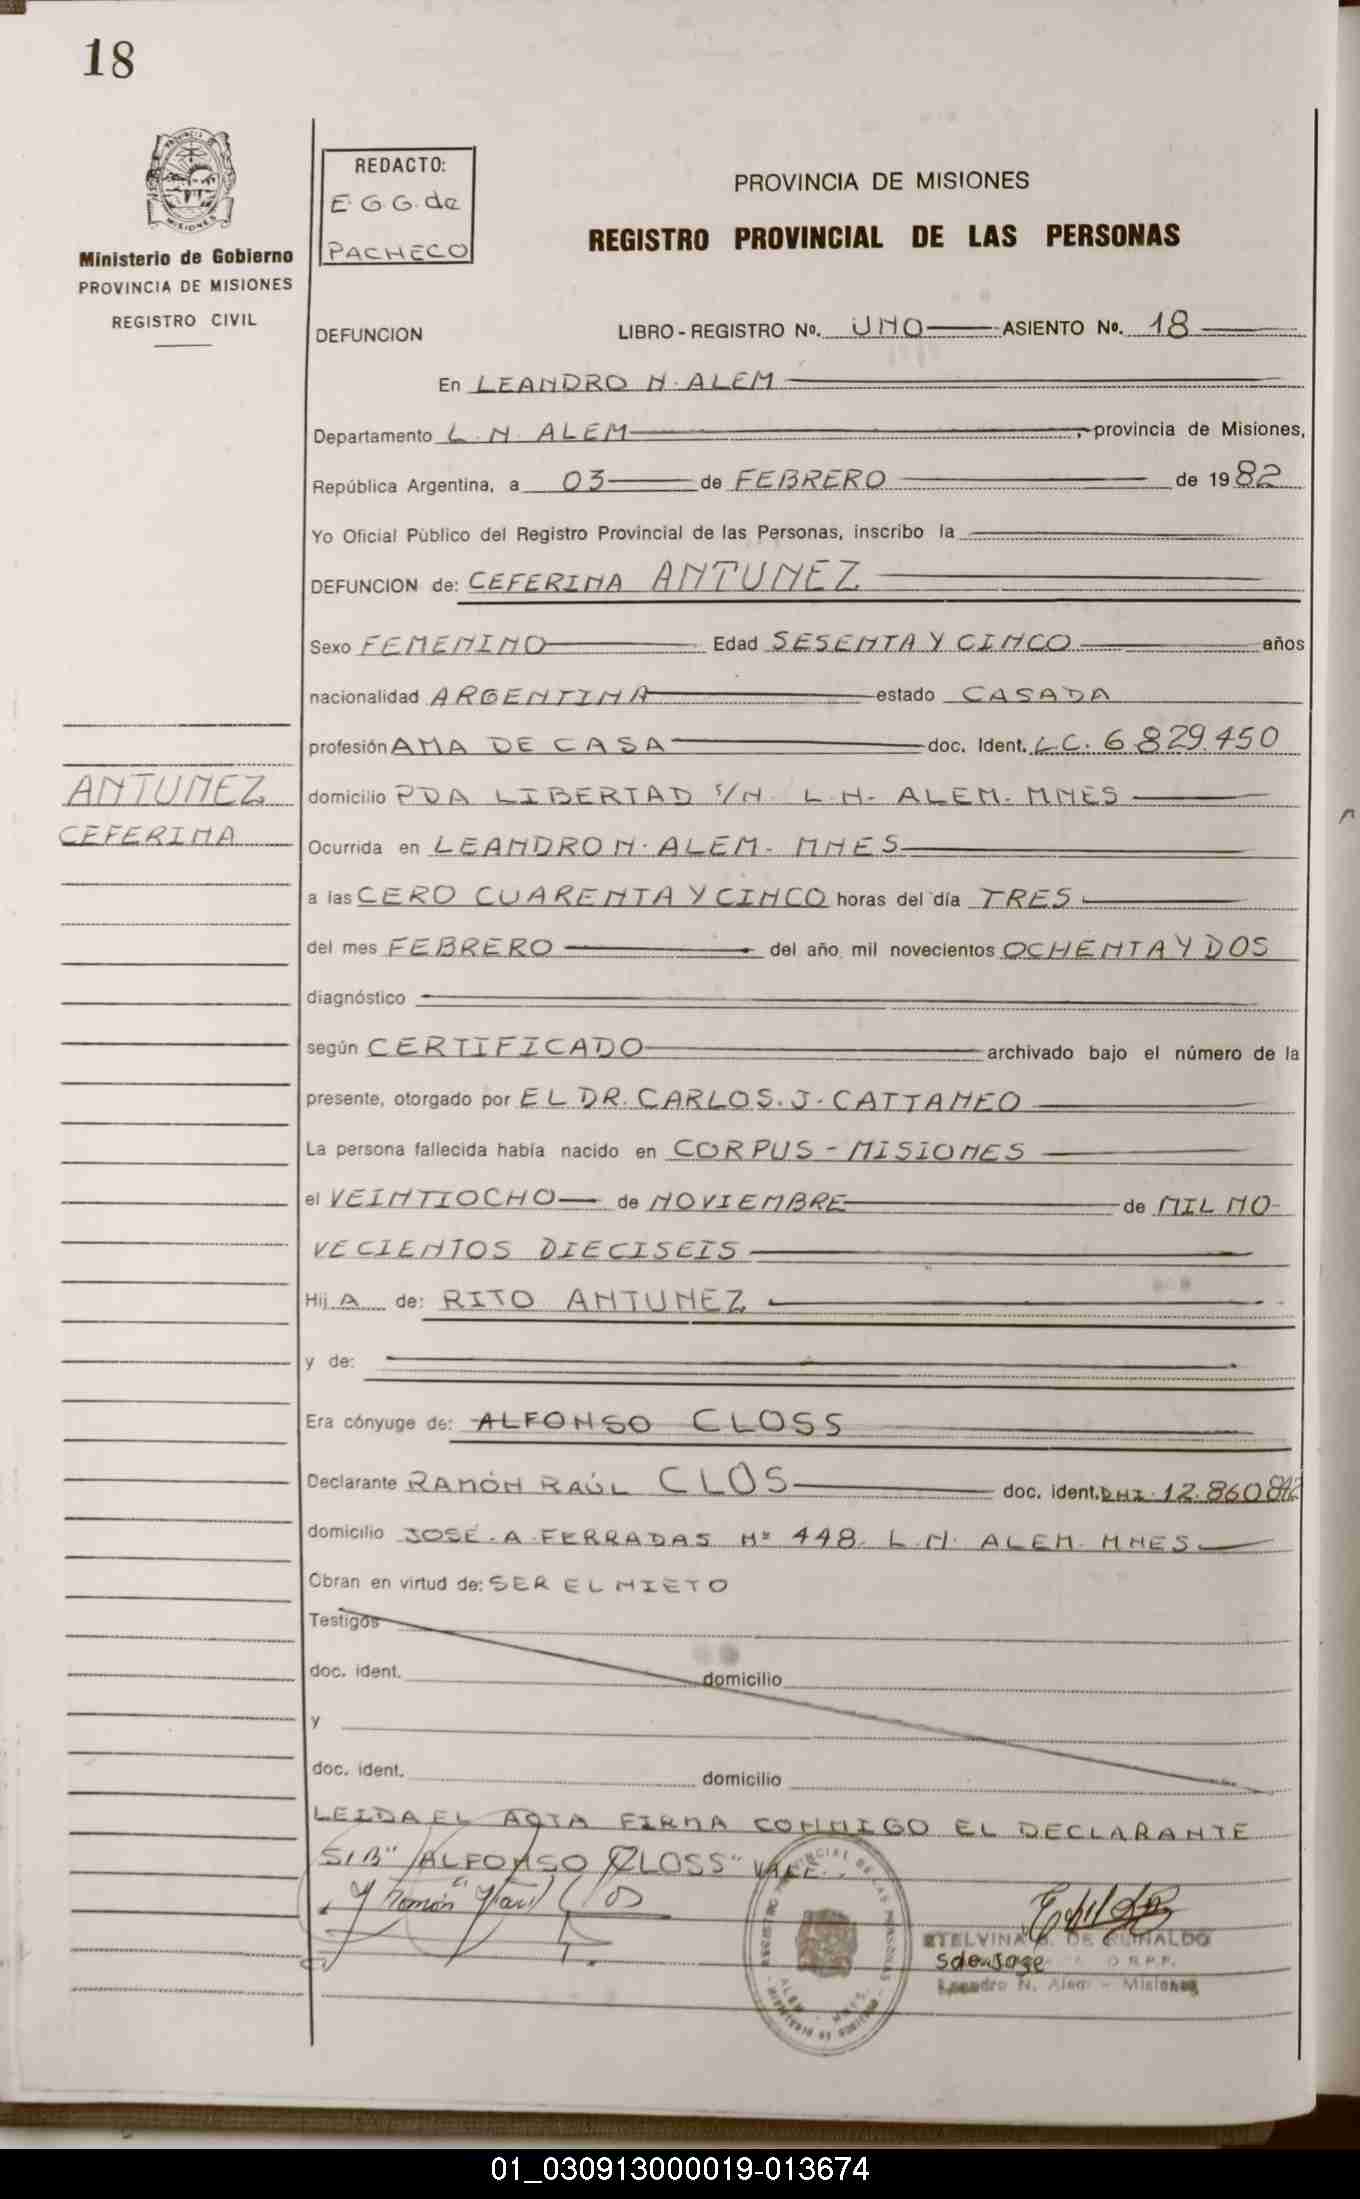 18
REDACTO:
E.G.G. de
PACHECO
PROVINCIA DE MISIONES
REGISTRO PROVINCIAL DE LAS PERSONAS
Ministerio de Gobierno
PROVINCIA DE MISIONES
REGISTRO CIVIL
DEFUNCION LIBRO - REGISTRO Nº. UNO ASIENTO Nº. 18
En LEANDRO N. ALEM
Departamento L. N. ALEM, provincia de Misiones,
República Argentina, a 03 de FEBRERO de 1982
Yo Oficial Público del Registro Provincial de las Personas, inscribo la
DEFUNCION de: CEFERINA ANTUNEZ
Sexo FEMENINO Edad SESENTA Y CINCO años
nacionalidad ARGENTINA estado CASADA
profesión AMA DE CASA doc. Ident. L.C. 6.829.450
ANTUNEZ
CEFERINA
domicilio PDA LIBERTAD S/N. L. N. ALEM. MNES
Ocurrida en LEANDRO N. ALEM. MNES
a las CERO CUARENTA Y CINCO horas del día TRES
del mes FEBRERO del año mil novecientos OCHENTA Y DOS
diagnóstico
según CERTIFICADO archivado bajo el número de la
presente, otorgado por EL DR. CARLOS. J. CATTANEO
La persona fallecida había nacido en CORPUS - MISIONES
el VEINTIOCHO de NOVIEMBRE de MIL NO-
VECIENTOS DIECISEIS
Hij A de: RITO ANTUNEZ
y de:
Era cónyuge de: ALFONSO CLOSS
Declarante RAMÓN RAÚL CLOS doc. ident. DNI. 12.860.
domicilio JOSÉ. A. FERRADAS Nº 448. L. N. ALEM. MNES
Obran en virtud de: SER EL NIETO
Testigos
doc. ident. domicilio
y
doc. ident. domicilio
LEIDA EL ACTA FIRMA CONMIGO EL DECLARANTE
S/B "ALFONSO CLOSS" VALE.
Ramón Raúl Clos
ETELVINA DE
Leandro N. Alem - Misiones
01_030913000019-013674